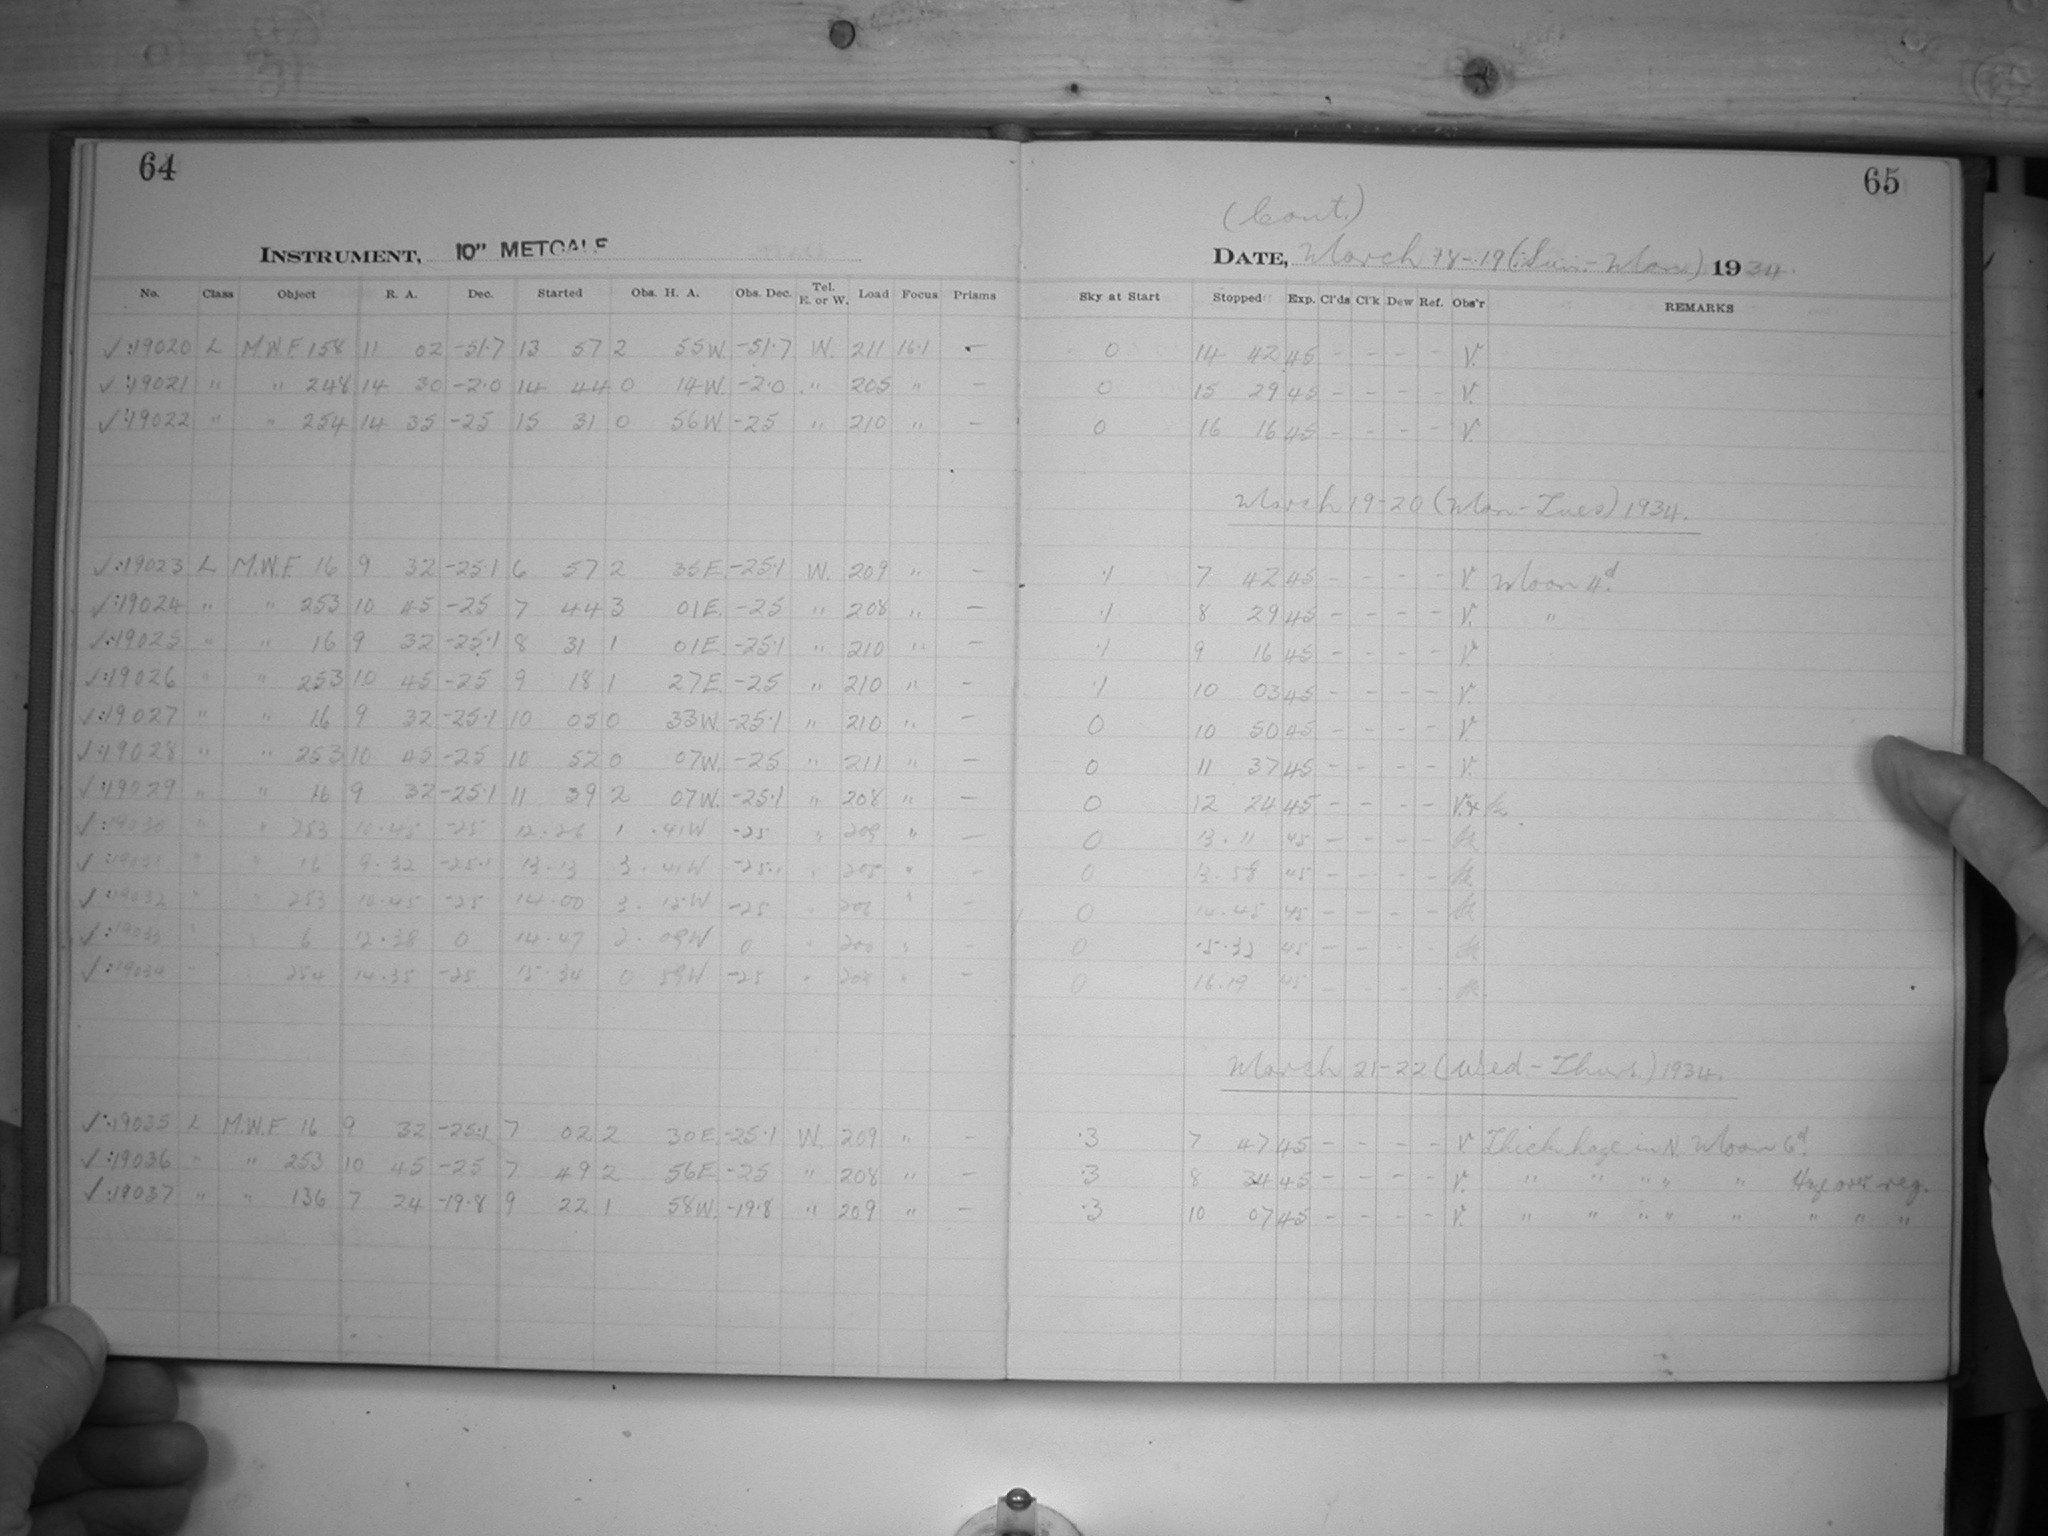 64
INSTRUMENT, 10" METCALF
No. Class Object R. A. Dec. Started Obs. H. A. Obs. Dec. Tel. E. or W. Load Focus Prisms
✓:19020 L M.W.F. 158 11 02 -51.7 13 57 2 55W. -51.7 W. 211 16.1 -
✓:19021 " " 248 14 30 -2.0 14 44 0 14W. -2.0 " 205 " -
✓:19022 " " 254 14 35 -25 15 31 0 56W. -25 " 210 " -
✓:19023 L M.W.F. 16 9 32 -25.1 6 57 2 35E. -25.1 W. 209 " -
✓:19024 " " 253 10 45 -25 7 44 3 01E. -25 " 208 " -
✓:19025 " " 16 9 32 -25.1 8 31 1 01E. -25.1 " 210 " -
✓:19026 " " 253 10 45 -25 9 18 1 27E. -25 " 210 " -
✓:19027 " " 16 9 32 -25.1 10 05 0 33W. -25.1 " 210 " -
✓:19028 " " 253 10 45 -25 10 52 0 07W. -25 " 211 " -
✓:19029 " " 16 9 32 -25.1 11 39 2 07W. -25.1 " 208 " -
✓:19030 " " 253 10.45 -25 12.26 1 .41W -25 " 209 " -
✓:19031 " " 16 9.32 -25.1 13.13 3. 41W -25.1 " " -
✓:19032 " " 253 10.45 -25 14.00 3. 15W -25 " " -
✓:19033 " " 6 12.38 0 14.47 2. 09W 0 " " -
✓:19034 " " 254 14.35 -25 15.34 0 59W -25 " " -
✓:19035 L M.W.F. 16 9 32 -25.1 7 02 2 30E. -25.1 W. 209 " -
✓:19036 " " 253 10 45 -25 7 49 2 56E. -25 " 208 " -
✓:19037 " " 136 7 24 -19.8 9 22 1 58W. -19.8 " 209 " -
65
(Cont.)
DATE, March 18-19 (Sun.-Mon.) 1934.
Sky at Start Stopped Exp. Cl'ds Cl'k Dew Ref. Obs'r REMARKS
0 14 42 45 - - - - V.
0 15 29 45 - - - - V.
0 16 16 45 - - - - V.
March 19-20 (Mon-Tues) 1934.
.1 7 42 45 - - - - V. Moon 4d.
.1 8 29 45 - - - - V. "
.1 9 16 45 - - - - V.
.1 10 03 45 - - - - V.
0 10 50 45 - - - - V.
0 11 37 45 - - - - V.
0 12 24 45 - - - -
0 13.11 45 - - - -
0 13.58 45 - - - -
0 14.45 45 - - - -
0 15.32 45 - - - -
0 16.19 45 - - - -
March 21-22 (Wed.-Thurs.) 1934.
.3 7 47 45 - - - - V Thick haze in N. Moon 6d.
.3 8 34 45 - - - - V. " " " " " Haze over reg.
.3 10 07 45 - - - - V. " " " " " " " "